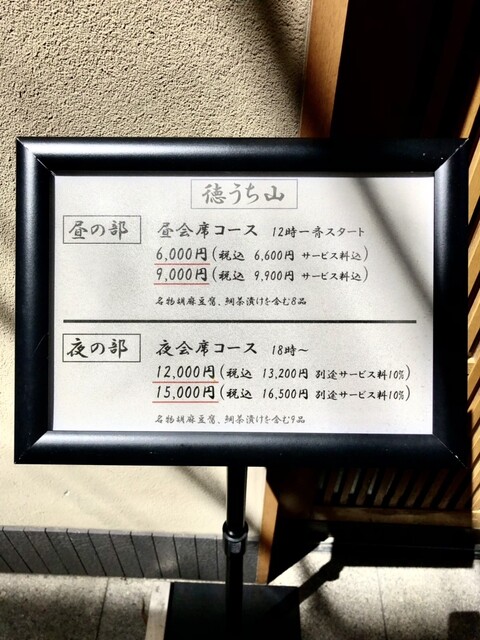 徳うち山
昼の部
昼会席コース 12時一斉スタート
6,000円(税込 6,600円 サービス料込)
9,000円(税込 9,900円 サービス料込)
名物胡麻豆腐、鯛茶漬けを含む8品
夜の部
夜会席コース 18時～
12,000円(税込 13,200円 別途サービス料10%)
15,000円(税込 16,500円 別途サービス料10%)
名物胡麻豆腐、鯛茶漬けを含む9品